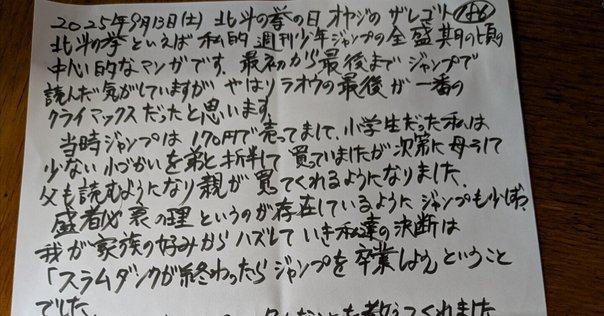 2025年9月13日(土) 北斗の拳の日 オヤジのザレゴト
北斗の拳といえば私的週刊少年ジャンプの全盛期の頃の
中心的なマンガです。最初から最後までジャンプで
読んだ気がしていますがやはりラオウの最後が一番の
クライマックスだったと思います
当時ジャンプは170円で売ってまして、小学生だった私は
少ない小づかいを弟と折半して買っていましたが次第に母そして
父も読むようになり親が買てくれるようになりました。
盛者必衰の理というのが存在しているようにジャンプも少しずつ
我が家族の好みからハズしていき私達の決断は
「スラムダンクが終わったらジャンプを卒業しよう」ということ
でした。
教えてくれました